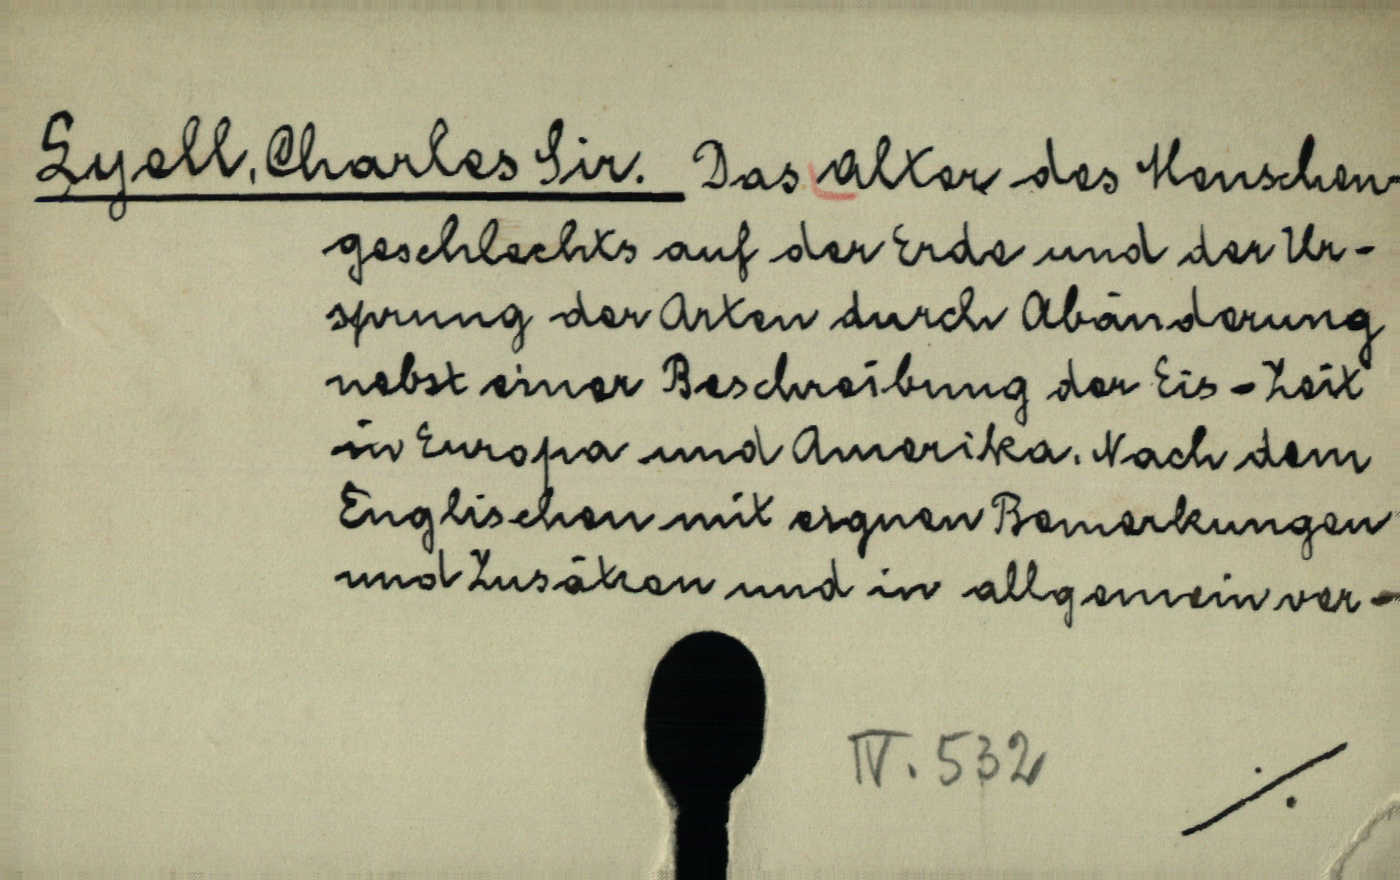 Lyell, Charles Sir. Das Alter des Menschen-
geschlechts auf der Erde und der Ur-
sprung der Arten durch Abänderung
nebst einer Beschreibung der Eis-Zeit
in Europa und Amerika. Nach dem
Englischen mit eignen Bemerkungen
und Zusätzen und in allgemein ver-
IV. 532
./.